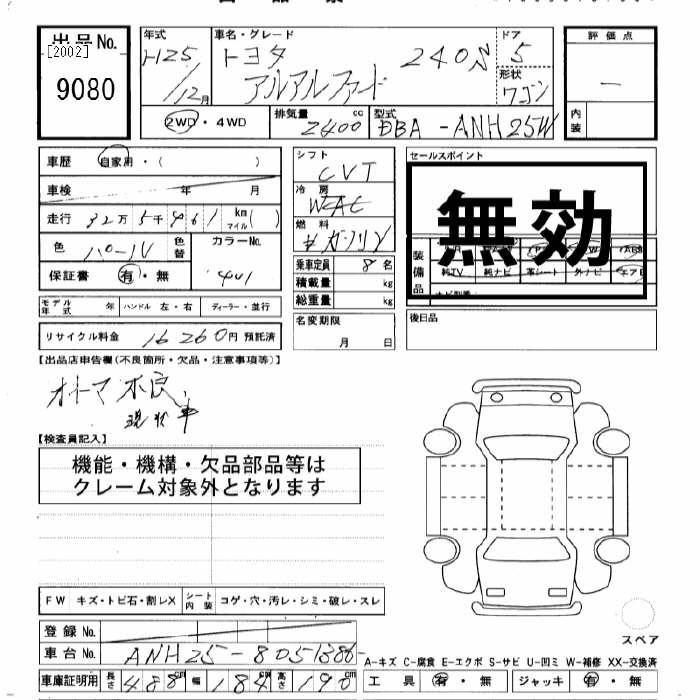 出品No.
[2002]
9080
年式
H25/12月
車名・グレード
トヨタ 240S
アルアルファード
ドア
5
形状
ワゴン
評価点
—
内装
2WD・4WD
排気量
2400 cc
型式
DBA-ANH25W
車歴 自家用・( )
車検 年 月
走行 32万5千961 km マイル( )
色 パール 色替
カラーNo.
保証書 有・無
シフト
CVT
冷房
WAC
燃料
ガソリン
乗車定員 8名
積載量 kg
総重量 kg
セールスポイント
無効
装備品
純TV 純ナビ 革シート 外ナビ エアB
モデル年式 年 ハンドル 左・右 ディーラー・並行
名変期限
月 日
後日品
リサイクル料金 16260円 預託済
【出品店申告欄(不良箇所・欠品・注意事項等)】
オートマ不良、
現状車
【検査員記入】
機能・機構・欠品部品等は
クレーム対象外となります
FW キズ・トビ石・割レX シート内装 コゲ・穴・汚レ・シミ・破レ・スレ
スペア
登録No.
車台No. ANH25-8051386-
A-キズ C-腐食 E-エクボ S-サビ U-凹ミ W-補修 XX-交換済
車庫証明用 長さ 488cm 幅 184cm 高さ 190cm
工具 有・無 ジャッキ 有・無